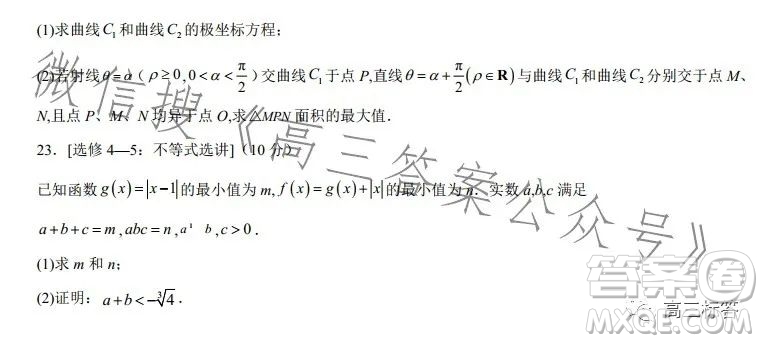 (1)求曲线C₁和曲线C₂的极坐标方程;
(2)若射线θ=α(ρ≥0,0<α<π/2)交曲线C₁于点P,直线θ=α+π/2(ρ∈R)与曲线C₁和曲线C₂分别交于点M、
N,且点P、M、N均异于点O,求△MPN面积的最大值.
23. [选修4—5:不等式选讲](10分)
已知函数g(x)=|x-1|的最小值为m,f(x)=g(x)+|x|的最小值为n.实数a,b,c满足
a+b+c=m,abc=n,a¹ b,c>0.
(1)求m和n;
(2)证明:a+b<-∛4.
微信搜《高三答案公众号》
答案卷
高三标答
MXQE.COM